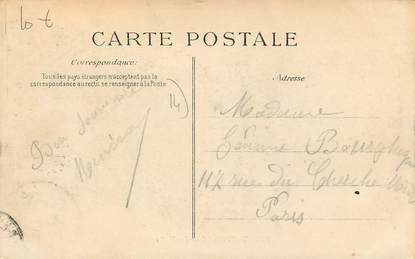 lot
CARTE POSTALE
Correspondance:
Tous les pays étrangers n'acceptent pas la
correspondance au recto, se renseigner à la Poste
Adresse
14
Bon Souvenir
Madame
117 rue du Cherche Midi
Paris